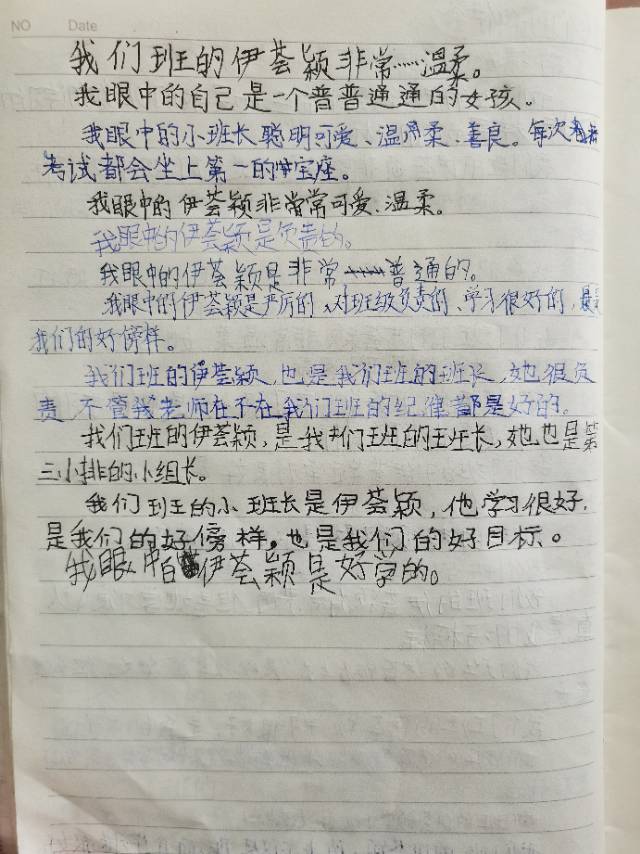 NO Date
我们班的伊荟颖非常……温柔。
我眼中的自己是一个普普通通的女孩。
我眼中的小班长聪明可爱、温柔、善良。每次
考试都会坐上第一的宝座。
我眼中的伊荟颖非常常可爱、温柔。
我眼中的伊荟颖是负责的。
我眼中的伊荟颖是非常普通的。
我眼中的伊荟颖是严厉的、对班级负责的、学习很好的,是
我们的好傍样。
我们班的伊荟颖,也是我们班的班长,她很负
责,不管我老师在不在,我们班的纪律都是好的。
我们班的伊荟颖,是我们班的班长,她也是第
三小排的小组长。
我们班的小班长是伊荟颖,他学习很好,
是我们的好傍样。也是我们的好目标。
我眼中的伊荟颖是好学的。